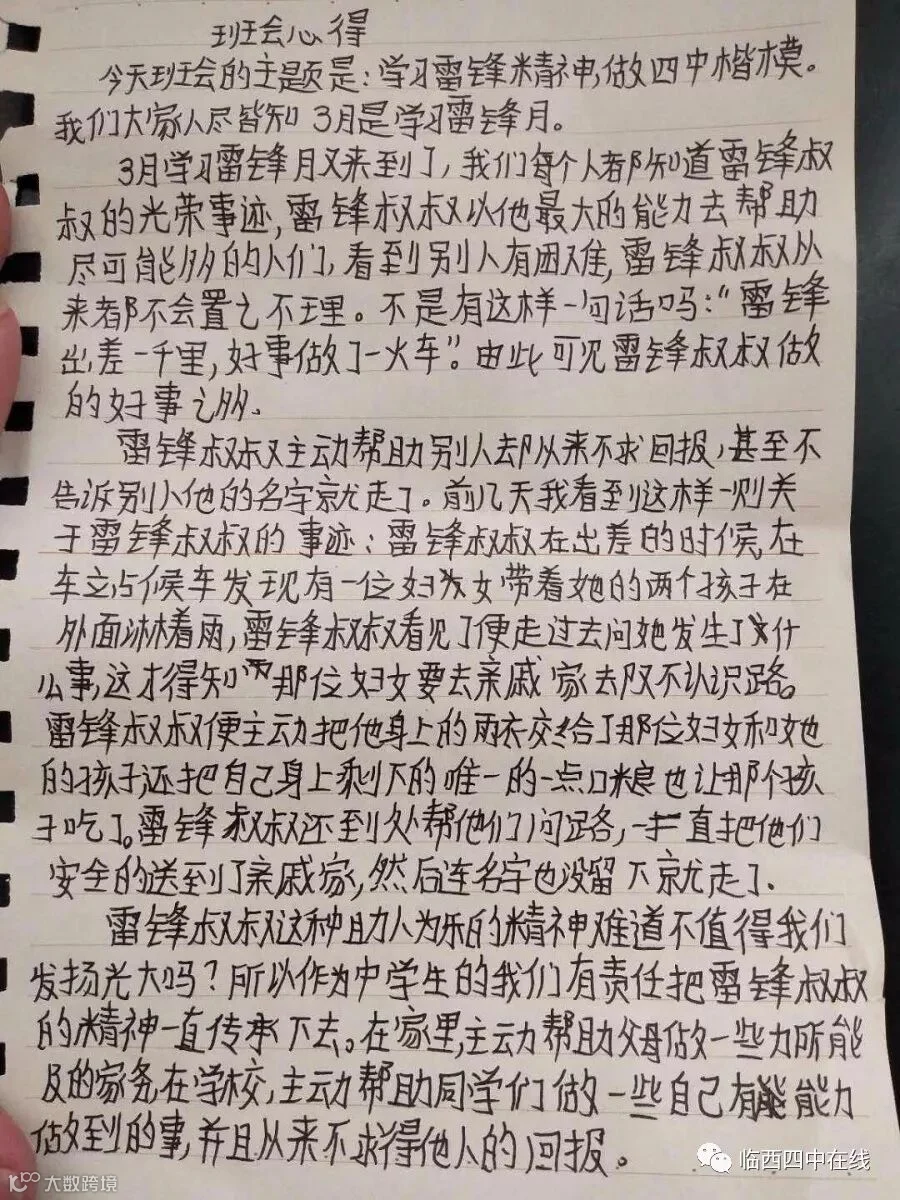 班会心得
今天班会的主题是：学习雷锋精神，做四中楷模。
我们大家人尽皆知3月是学习雷锋月。
3月学习雷锋月又来到了，我们每个人都知道雷锋叔
叔的光荣事迹，雷锋叔叔以他最大的能力去帮助
尽可能多的人们，看到别人有困难，雷锋叔叔从
来都不会置之不理。不是有这样一句话吗：“雷锋
出差一千里，好事做了一火车”。由此可见雷锋叔叔做
的好事之多。
雷锋叔叔主动帮助别人却从来不求回报，甚至不
告诉别人他的名字就走了。前几天我看到这样一则关
于雷锋叔叔的事迹：雷锋叔叔在出差的时候，在
车站候车发现有一位妇女带着她的两个孩子在
外面淋着雨，雷锋叔叔看见了便走过去问她发生了什
么事，这才得知那位妇女要去亲戚家去却不认识路。
雷锋叔叔便主动把他身上的雨衣交给了那位妇女和她
的孩子，还把自己身上剩下的唯一的一点口粮也让那个孩
子吃了。雷锋叔叔还到处帮他们问路，一直把他们
安全的送到了亲戚家，然后连名字也没留下就走了.
雷锋叔叔这种助人为乐的精神难道不值得我们
发扬光大吗？所以作为中学生的我们有责任把雷锋叔叔
的精神一直传承下去。在家里，主动帮助父母做一些力所能
及的家务，在学校，主动帮助同学们做一些自己有能能力
做到的事，并且从来不求得他人的回报。
临西四中在线
大数跨境